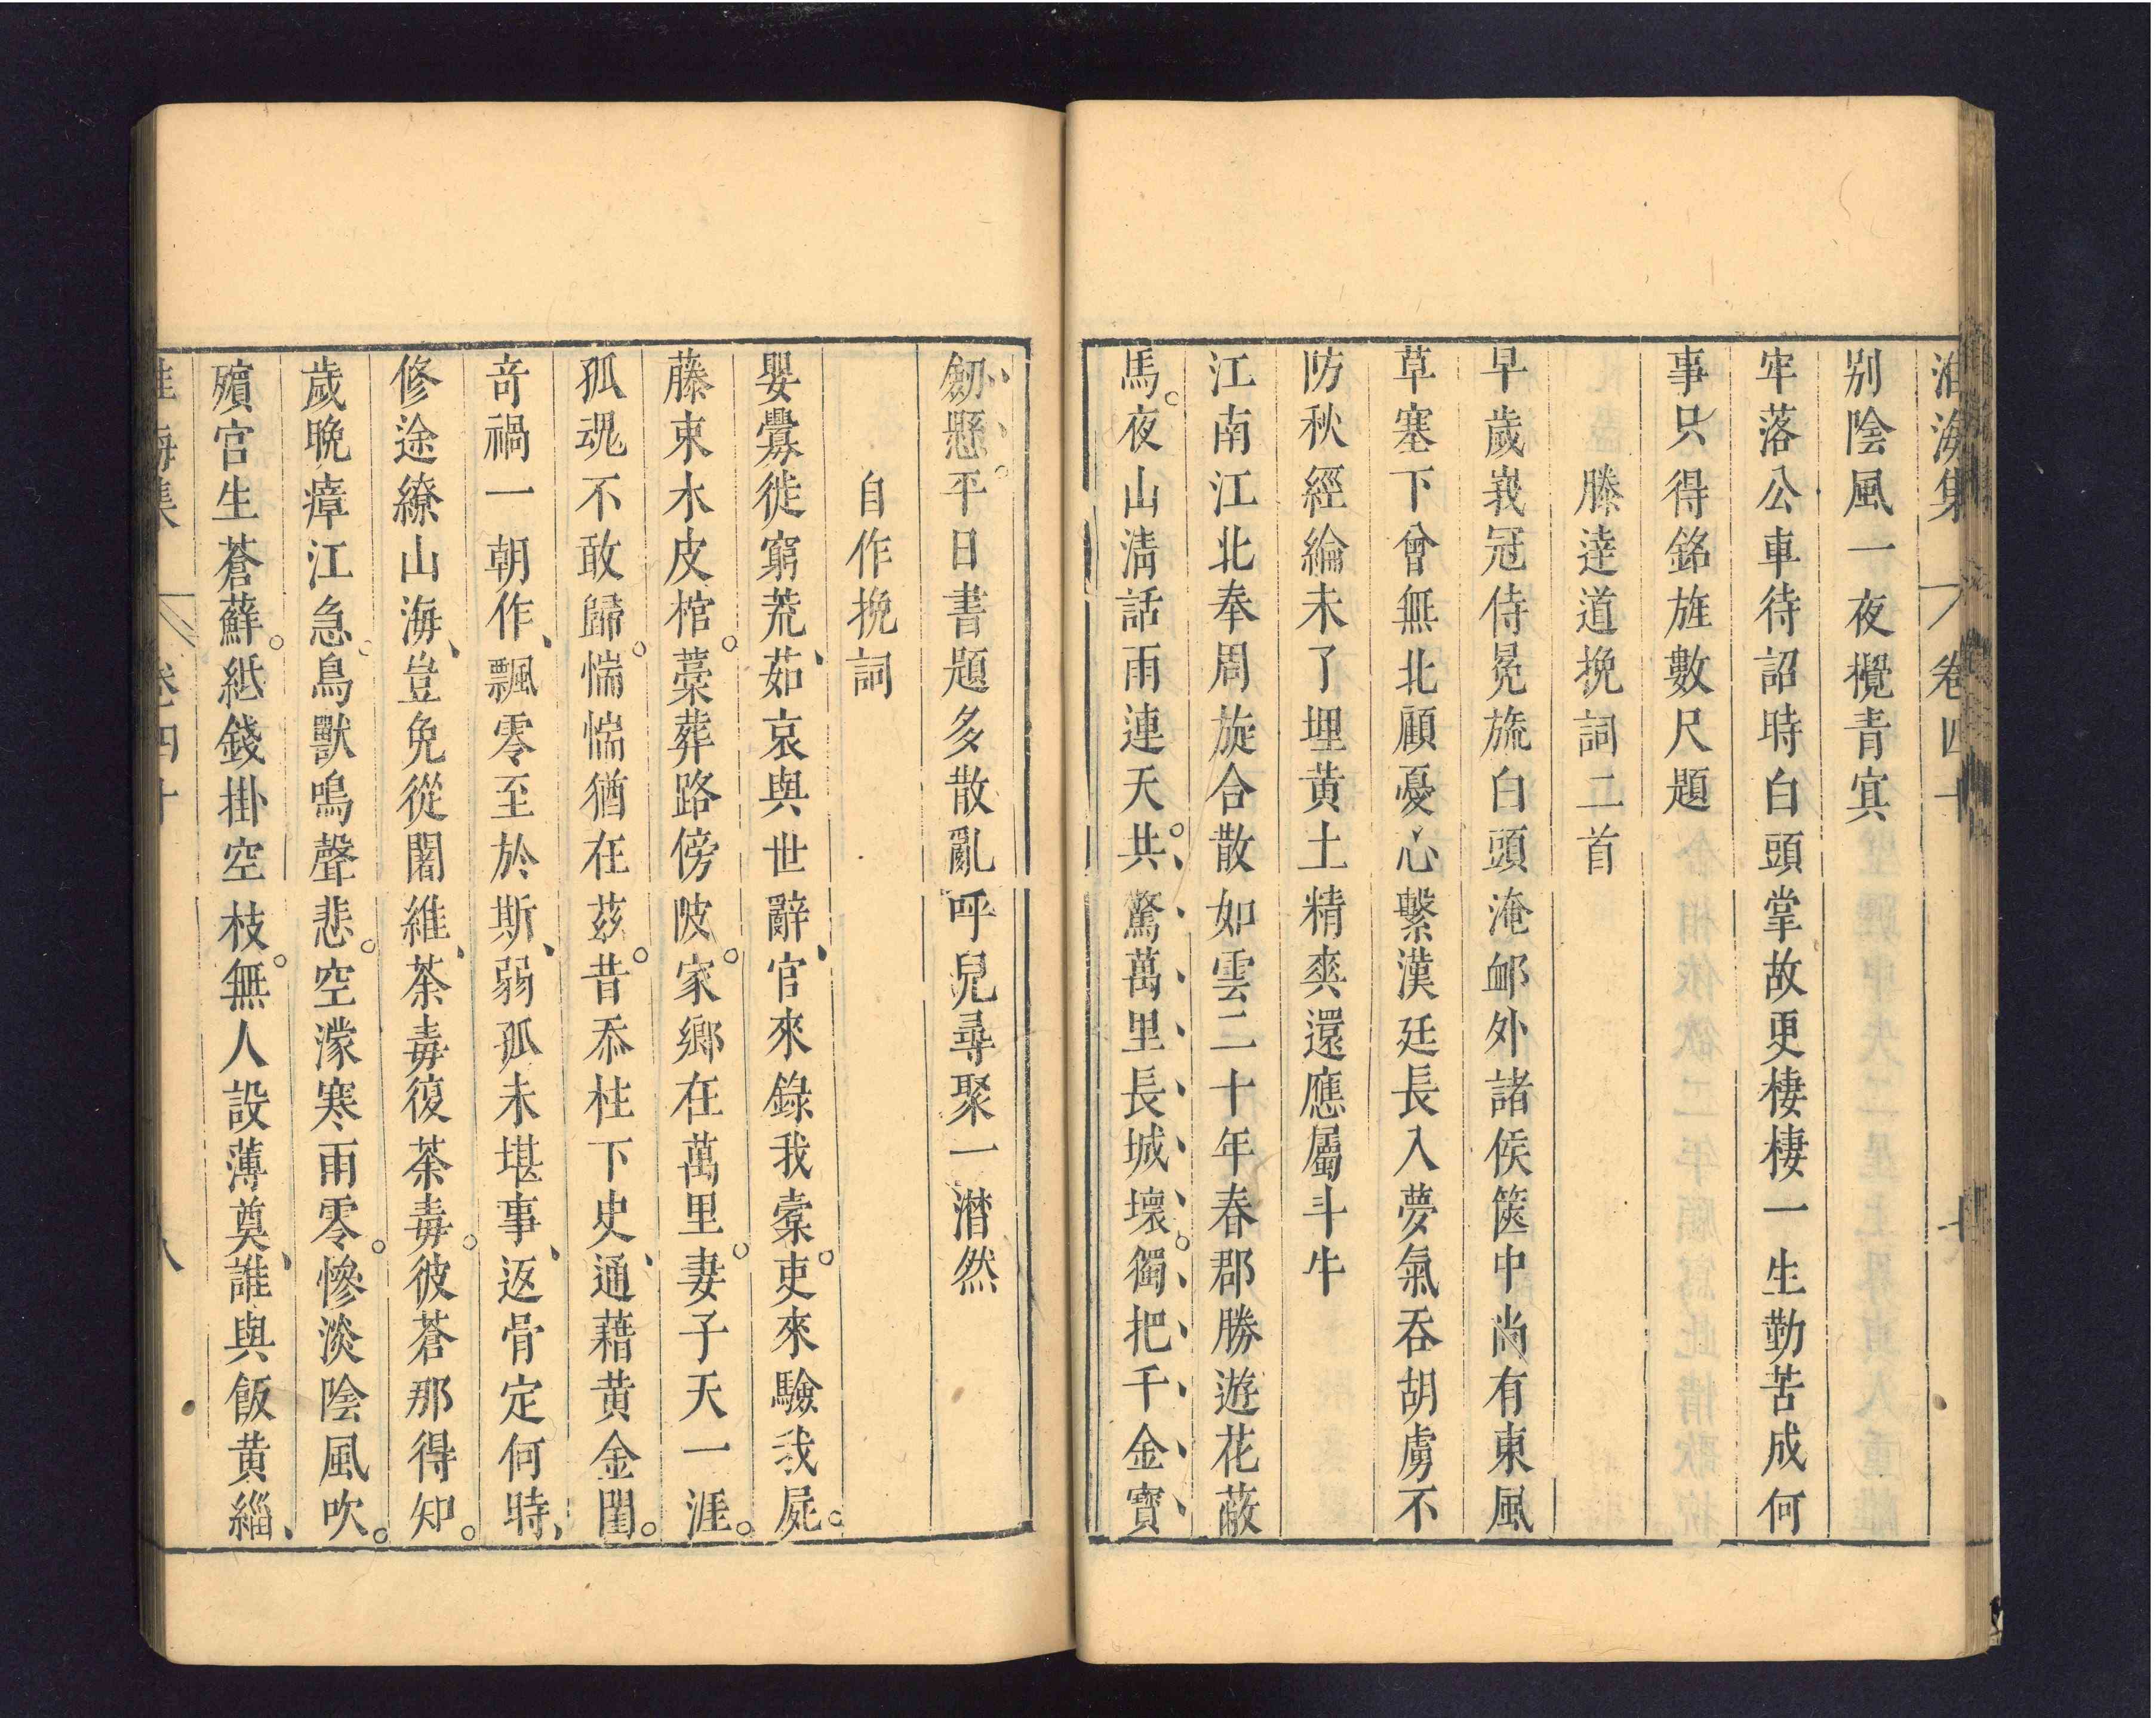 淮海集 卷四十
別陰風一夜攪青㝠
牢落公車待詔時白頭掌故更棲棲一生勤苦成何
事只得銘旌數尺題
滕逹道挽詞二首
早歲峩冠侍冕旒白頭淹卹外諸侯篋中尚有東風
草塞下曾無北顧憂心繫漢廷長入夢氣吞胡虜不
防秋經綸未了埋黄土精爽還應屬斗牛
江南江北奉周旋合散如雲二十年春郡勝遊花蔽
馬夜山淸話雨連天共驚萬里長城壞獨把千金寶
劒懸平日書題多散亂呼兒尋聚一潸然
自作挽詞
嬰釁徙窮荒茹哀與世辭官來錄我橐吏來驗我屍
藤束木皮棺藁葬路傍陂家鄉在萬里妻子天一涯
孤魂不敢歸惴惴猶在茲昔忝柱下史通藉黄金閨
竒禍一朝作飄零至於斯弱孤未堪事返骨定何時
修途繚山海豈免從闍維荼毒復荼毒彼蒼那得知
歲晚瘴江急鳥獸鳴聲悲空濛寒雨零慘淡陰風吹
殯宮生蒼蘚紙錢掛空枝無人設薄奠誰與飯黄緇
海集 卷四十 八